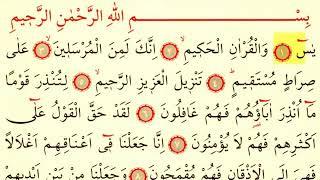 بِسْمِ اللهِ الرَّحْمٰنِ الرَّحِيمِ
يٰسٓ ﴿١﴾ وَالْقُرْاٰنِ الْحَكِيمِ ﴿٢﴾ اِنَّكَ لَمِنَ الْمُرْسَلِينَ ﴿٣﴾ عَلٰى
صِرَاطٍ مُسْتَقِيمٍ ﴿٤﴾ تَنْزِيلَ الْعَزِيزِ الرَّحِيمِ ﴿٥﴾ لِتُنْذِرَ قَوْمًا
مَا اُنْذِرَ اٰبَاؤُهُمْ فَهُمْ غَافِلُونَ ﴿٦﴾ لَقَدْ حَقَّ الْقَوْلُ عَلٰٓى
اَكْثَرِهِمْ فَهُمْ لَا يُؤْمِنُونَ ﴿٧﴾ اِنَّا جَعَلْنَا فِٓى اَعْنَاقِهِمْ اَغْلَالًا
فَهِىَ اِلَى الْاَذْقَانِ فَهُمْ مُقْمَحُونَ ﴿٨﴾ وَجَعَلْنَا مِنْ بَيْنِ اَيْدِيهِمْ